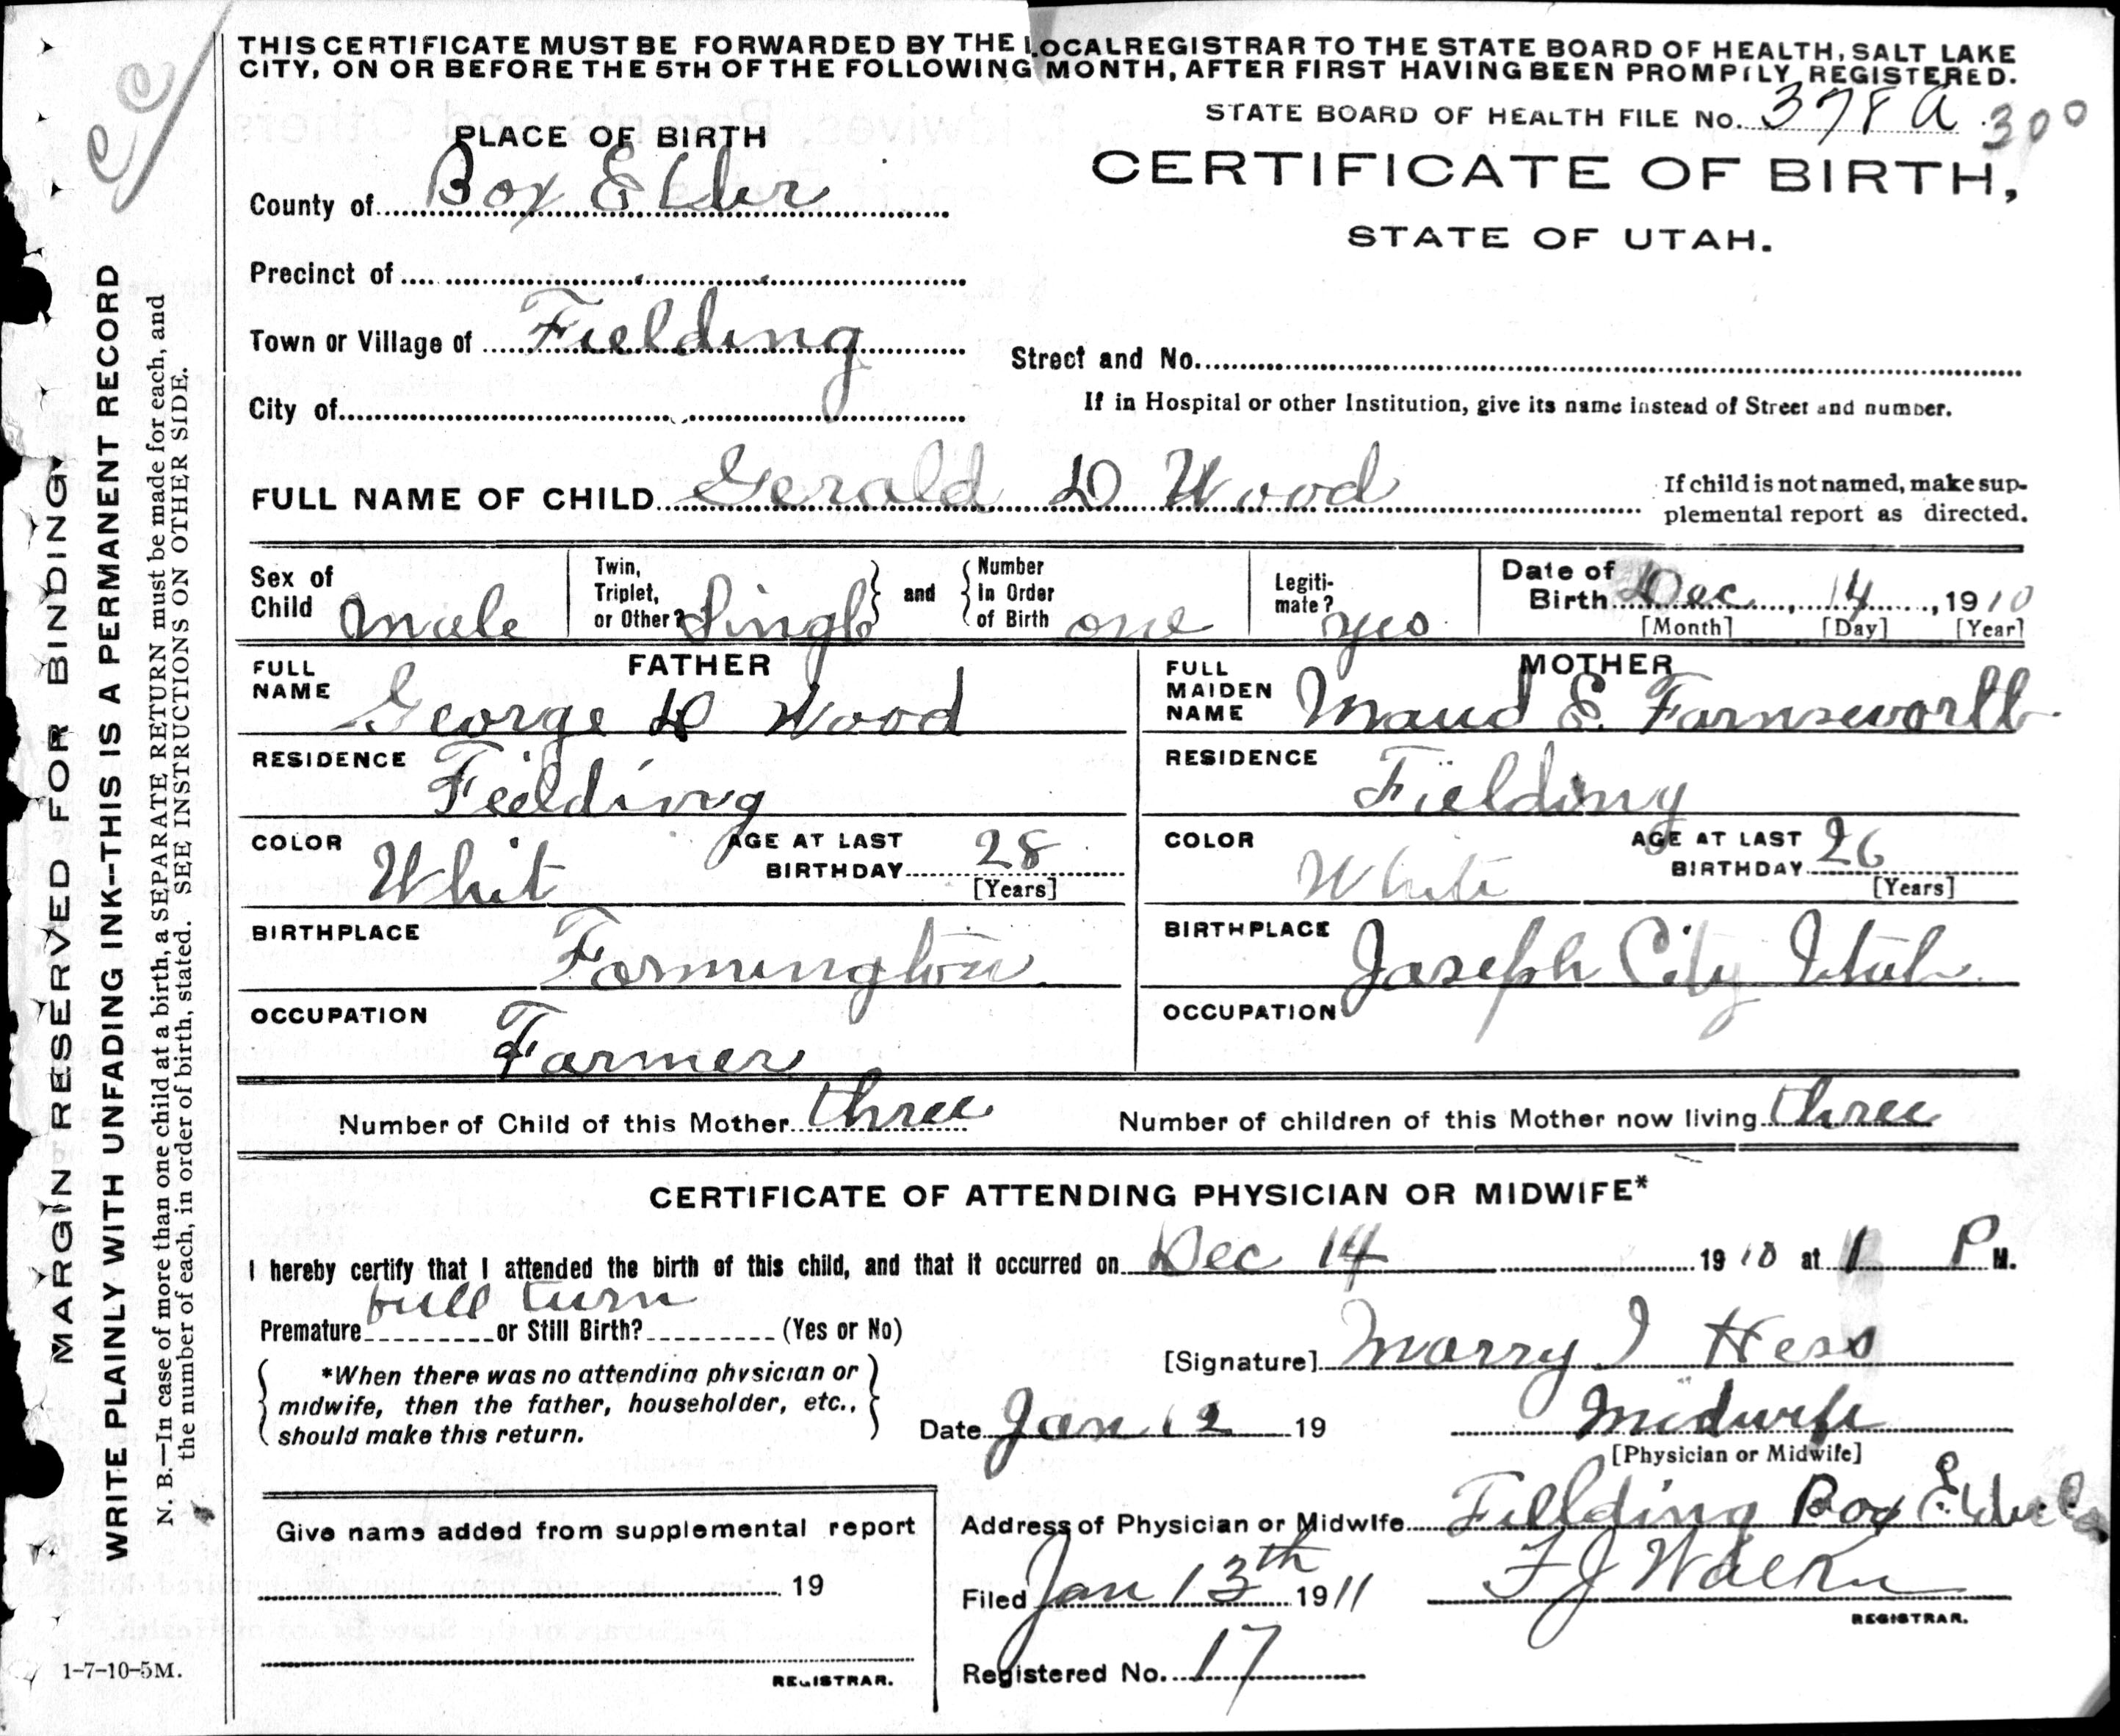 THIS CERTIFICATE MUST BE FORWARDED BY THE LOCAL REGISTRAR TO THE STATE BOARD OF HEALTH, SALT LAKE
CITY, ON OR BEFORE THE 5TH OF THE FOLLOWING MONTH, AFTER FIRST HAVING BEEN PROMPTLY REGISTERED.
STATE BOARD OF HEALTH FILE No. 378 a 300
PLACE OF BIRTH
CERTIFICATE OF BIRTH,
STATE OF UTAH.
County of Box Elder
Precinct of
Town or Village of Fielding
Street and No.
City of
If in Hospital or other Institution, give its name instead of Street and number.
FULL NAME OF CHILD Gerald D Wood
If child is not named, make sup-
plemental report as directed.
Sex of Child Male
Twin, Triplet, or Other? Singl
and
Number In Order of Birth one
Legiti-mate? yes
Date of Birth Dec, 14, 1910
[Month] [Day] [Year]
FATHER
FULL NAME George D Wood
RESIDENCE Feilding
COLOR Whit
AGE AT LAST BIRTHDAY 28
[Years]
BIRTHPLACE Farmington
OCCUPATION Farmer
MOTHER
FULL MAIDEN NAME Maud E. Farnsworth
RESIDENCE Fielding
COLOR White
AGE AT LAST BIRTHDAY 26
[Years]
BIRTHPLACE Joseph City Utah
OCCUPATION
Number of Child of this Mother three
Number of children of this Mother now living three
CERTIFICATE OF ATTENDING PHYSICIAN OR MIDWIFE*
I hereby certify that I attended the birth of this child, and that it occurred on Dec 14 1910 at 1 P M.
full turn
Premature or Still Birth? (Yes or No)
*When there was no attending physician or
midwife, then the father, householder, etc.,
should make this return.
[Signature] Marry I Hess
Date Jan 12 19
Midwife
[Physician or Midwife]
Address of Physician or Midwife Fillding Box Elder Co
Filed Jan 13th 1911
REGISTRAR.
Registered No. 17
Give name added from supplemental report
19
REGISTRAR.
MARGIN RESERVED FOR BINDING
WRITE PLAINLY WITH UNFADING INK--THIS IS A PERMANENT RECORD
N. B.—In case of more than one child at a birth, a SEPARATE RETURN must be made for each, and
the number of each, in order of birth, stated. SEE INSTRUCTIONS ON OTHER SIDE.
1-7-10-5M.